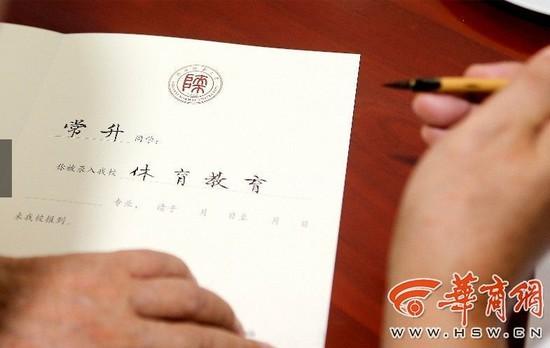 陕
常升 同学:
你被录入我校 体育教育
专业, 请于 月 日至 月 日
来我校报到。
华商网
WWW.HSW.CN